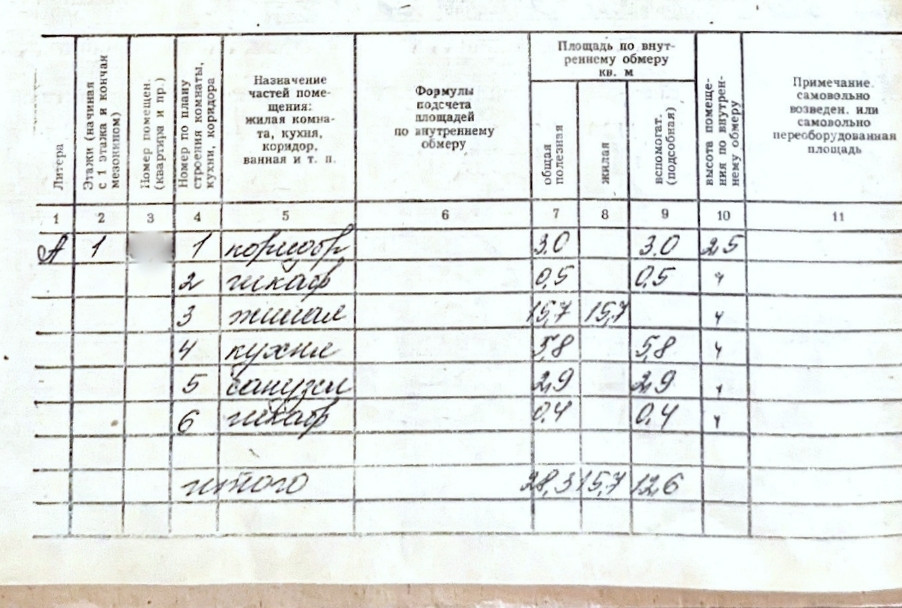 Литера
Этажи (начиная
с 1 этажа и кончая
мезонином)
Номер помещен.
(квартира и пр.)
Номер по плану
строения комнаты,
кухни, коридора
Назначение
частей поме-
щения:
жилая комна-
та, кухня,
коридор,
ванная и т. п.
Формулы
подсчета
площадей
по внутреннему
обмеру
Площадь по внут-
реннему обмеру
кв. м
общая
полезная
жилая
вспомогат.
(подсобная)
высота помеще-
ния по внутрен-
нему обмеру
Примечание.
самовольно
возведен. или
самовольно
переоборудованная
площадь
1 2 3 4 5 6 7 8 9 10 11
А 1 1 коридор 3.0 3.0 2,5
2 шкаф 0,5 0,5 "
3 жилая 15,7 15,7 "
4 кухня 5,8 5,8 "
5 санузел 2,9 2,9 "
6 шкаф 0,4 0,4 "
итого 28,3 15,7 12,6